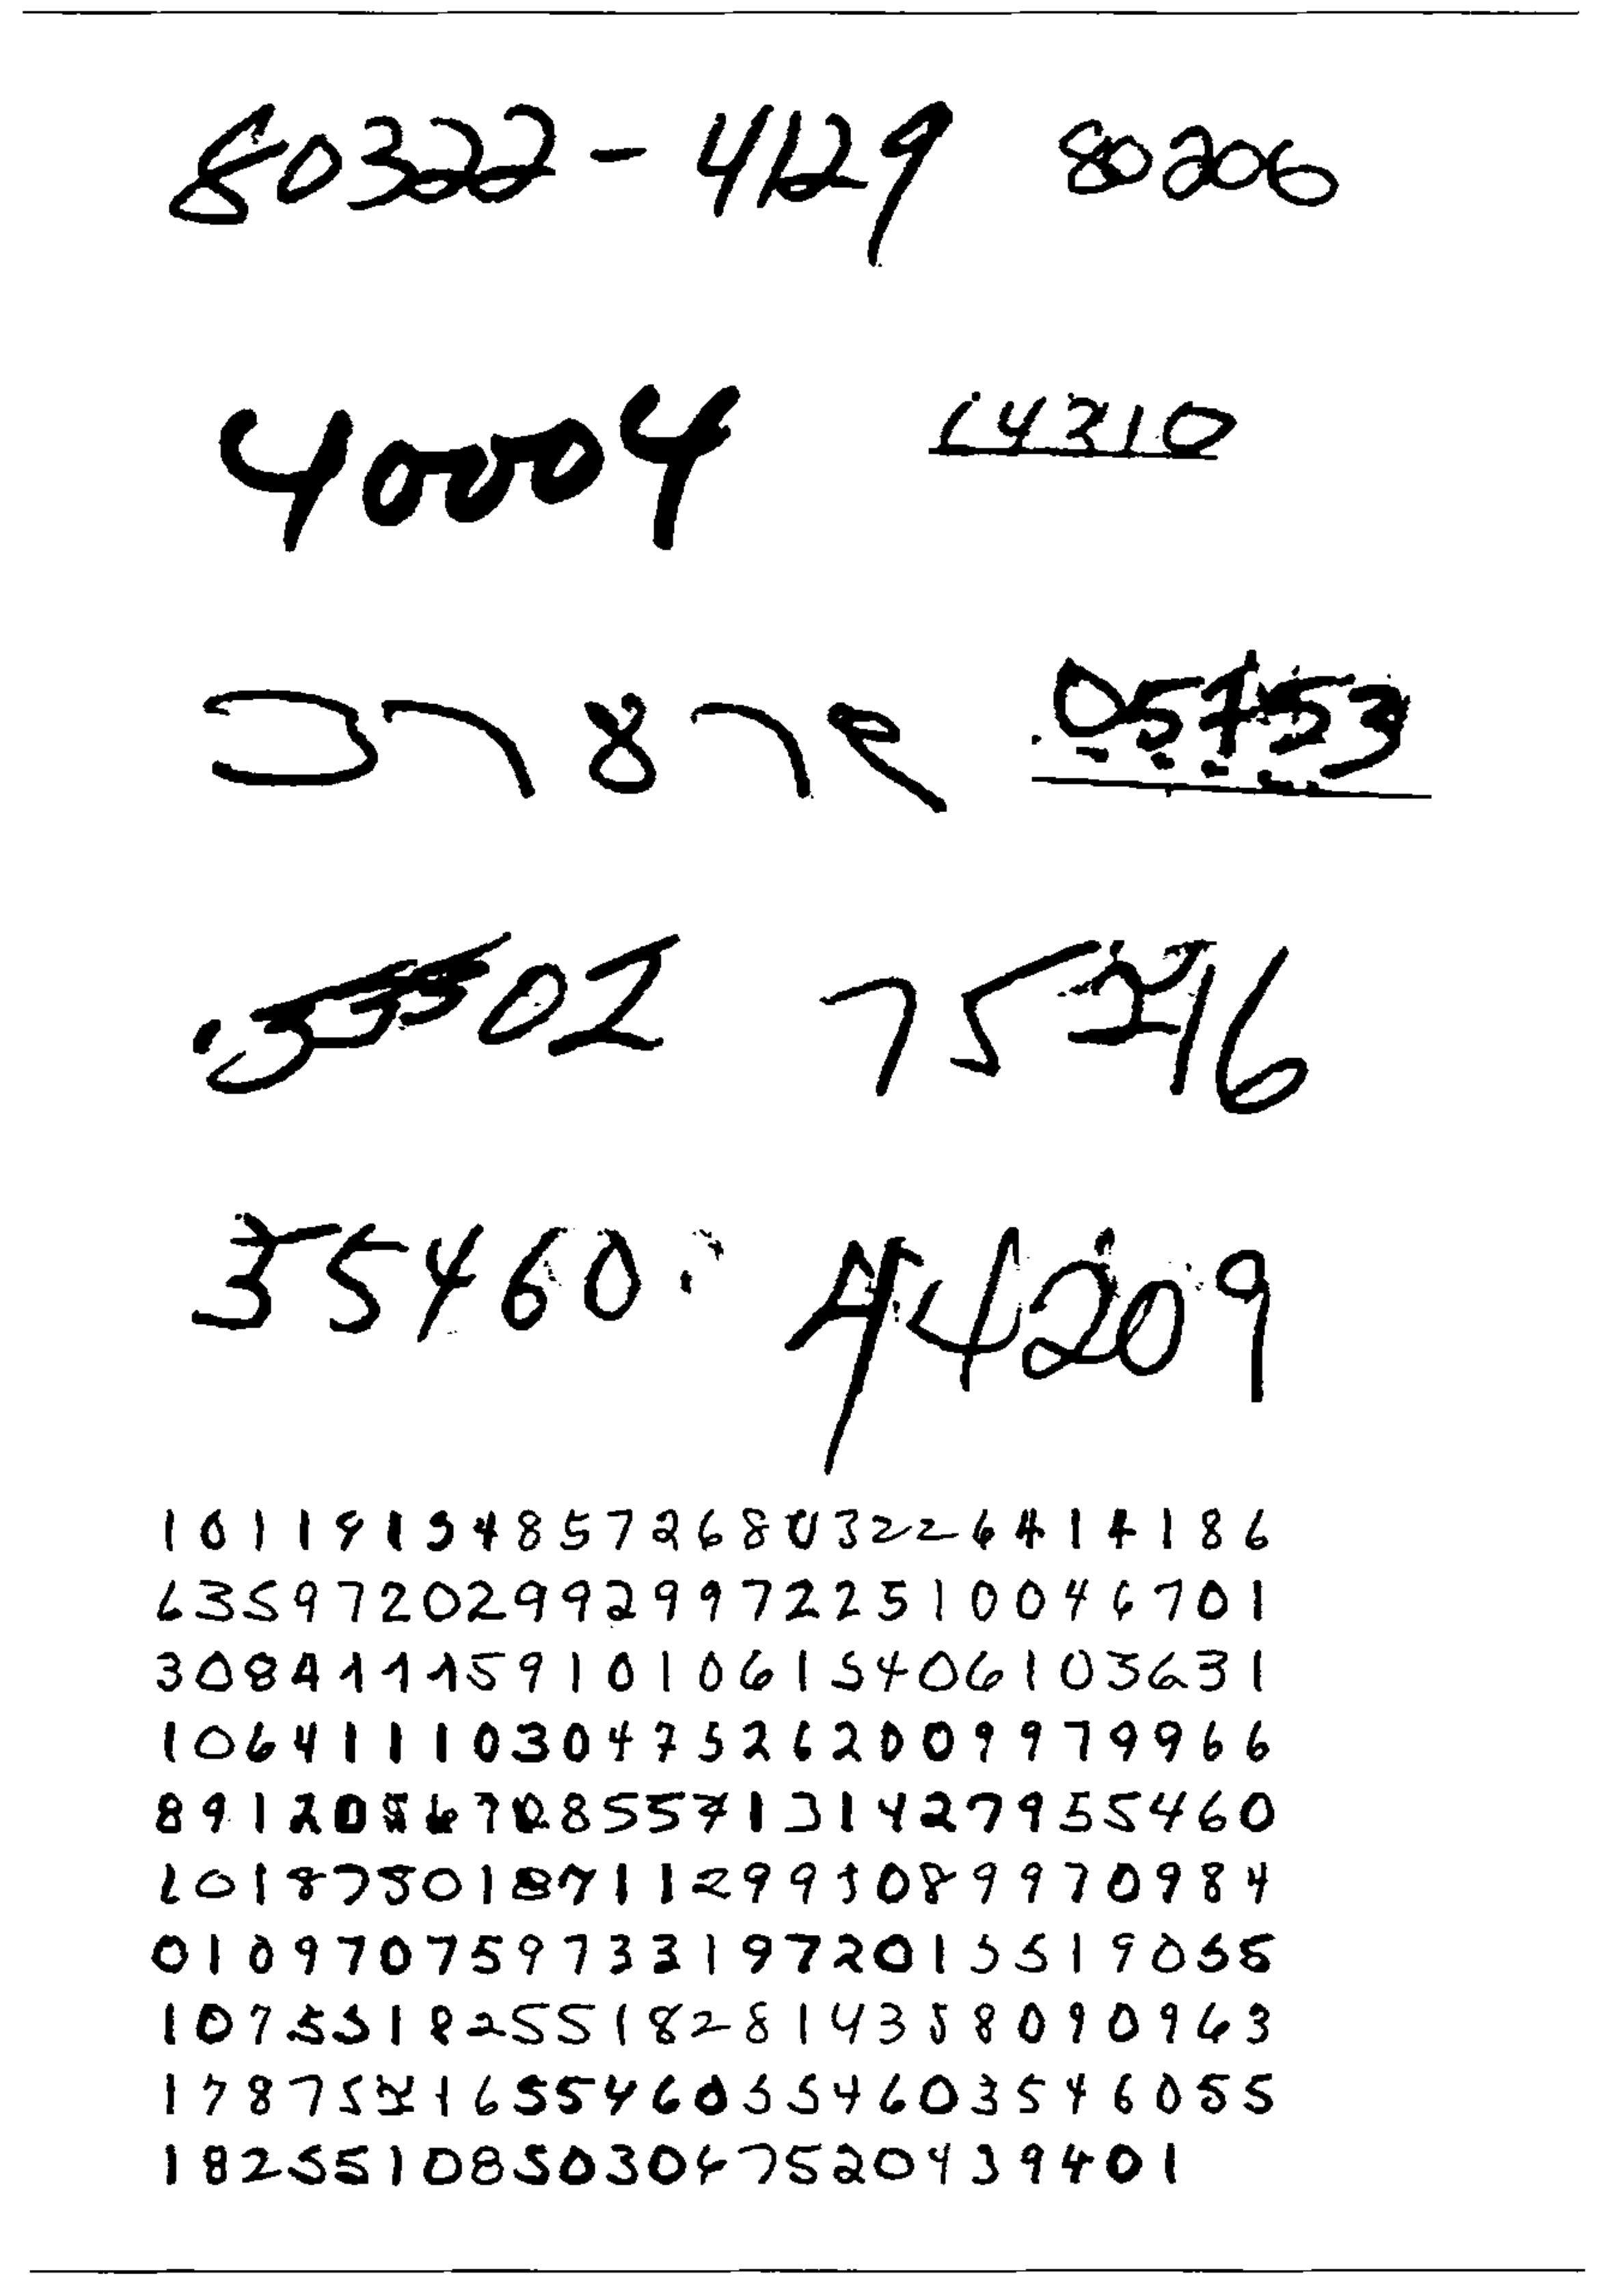 80322-4129 80206
40004 14310
37878 05753
35502 75216
35460 44209
1011913485726803226414186
6359720299299722510046701
3084111591010615406103631
1064111030475262009979966
8912056708557131427955460
1018750187112993089970984
0109707597331972015519055
1075518255182814358090963
1787521655460554603546055
18255108503047520439401